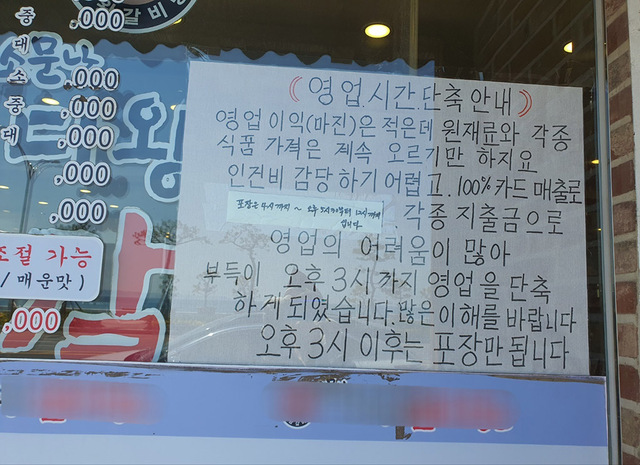 갈비
중
대
소문난
소 ,000
중 ,000
대 ,000
,000
,000
대왕
조절 가능
/ 매운맛 )
,000
( 영업.시간.단축 안내 )
영업 이익(마진)은 적은데 원재료와 각종
식품 가격은 계속 오르기만 하지요
인건비 감당하기 어렵고..100% 카드 매출로
포장은 4시까지 ~
입니다
. 각종 지출금으로
영업의 어려움이 많아
부득이 오후 3시까지 영업을 단축
하게 되였습니다. 많은 이해를 바랍니다
오후 3시 이후는 포장만 됩니다